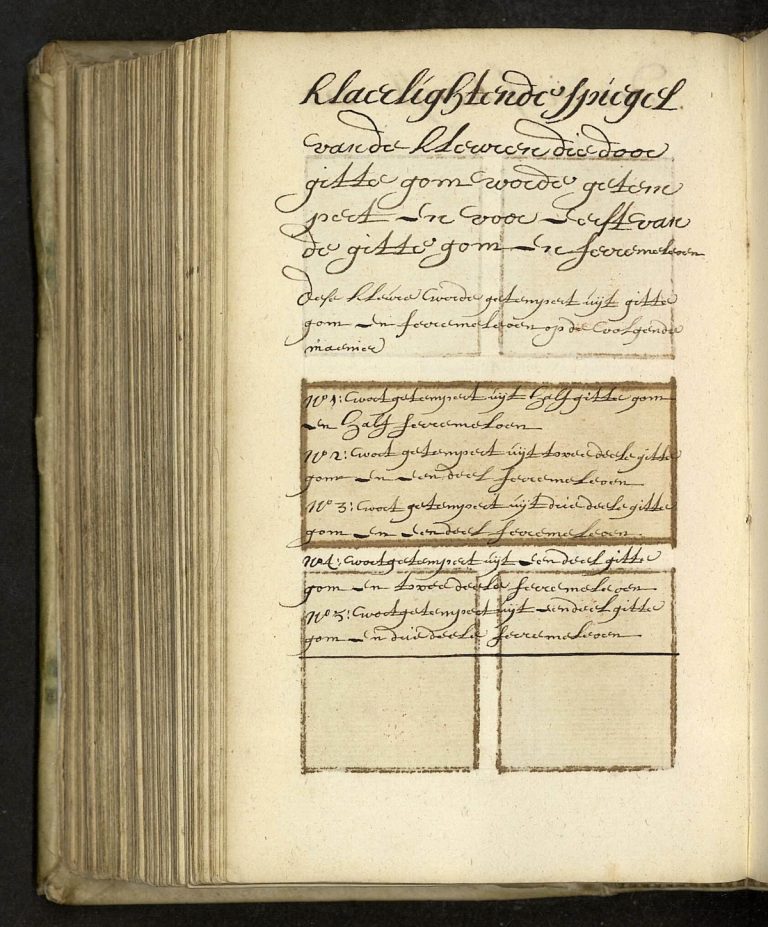 klaerlightende spiegel
van de kleuren die door
gitte gom worde getem
pert en voor eerst van
de gitte gom en fermeleoen
dese kleure worde getempert uijt gitte
gom en fermeleoen op de volgende
maenier
No 1: wort getempert uijt half gitte gom
en half fermeloen
No 2: wort getempert uijt twee deele gitte
gom en een deel fermeleoen
No 3: wort getempert uijt drie deele gitte
gom en een deel fermeleoen.
No 4: wort getempert uijt een deel gitte
gom en twee deele fermeleoen
No 5: wort getempert uijt een deel gitte
gom en drie deele fermeleoen